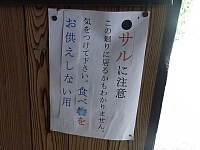 ●サルに注意
この廻りに居るかもわかりません。
気をつけて下さい。食べ物を
お供えしない用